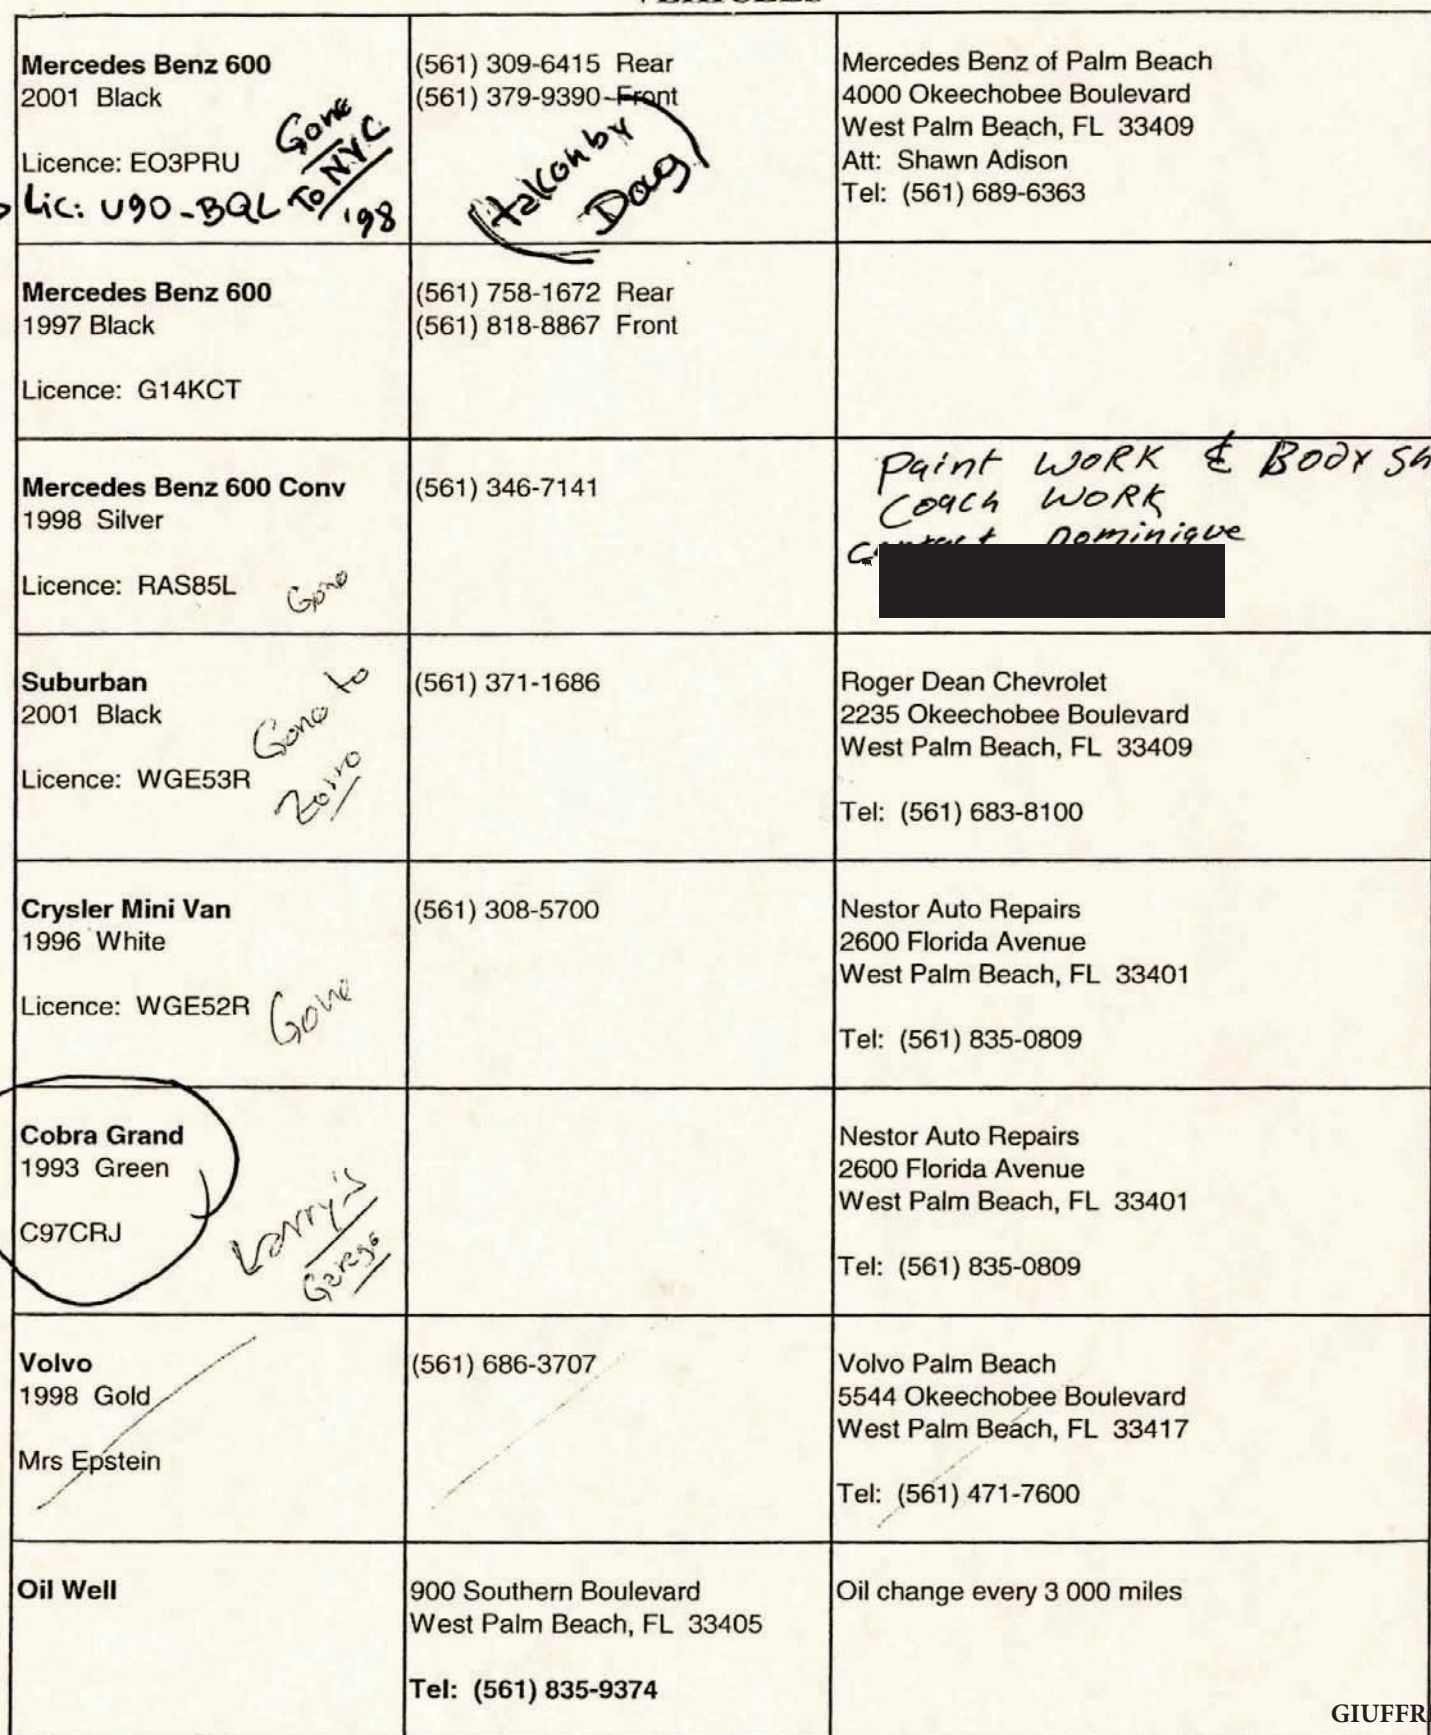 VEHICLES
Mercedes Benz 600
2001 Black
Licence: EO3PRU
Lic: U90-BQL
Gone
To NYC
'98
(561) 309-6415 Rear
(561) 379-9390 Front
taken by
Doug
Mercedes Benz of Palm Beach
4000 Okeechobee Boulevard
West Palm Beach, FL 33409
Att: Shawn Adison
Tel: (561) 689-6363
Mercedes Benz 600
1997 Black
Licence: G14KCT
(561) 758-1672 Rear
(561) 818-8867 Front
Mercedes Benz 600 Conv
1998 Silver
Licence: RAS85L
Gone
(561) 346-7141
Paint WORK & BODY Sh
Coach WORK
contact Dominique
Suburban
2001 Black
Licence: WGE53R
Gone to
Zorro
(561) 371-1686
Roger Dean Chevrolet
2235 Okeechobee Boulevard
West Palm Beach, FL 33409
Tel: (561) 683-8100
Crysler Mini Van
1996 White
Licence: WGE52R
Gone
(561) 308-5700
Nestor Auto Repairs
2600 Florida Avenue
West Palm Beach, FL 33401
Tel: (561) 835-0809
Cobra Grand
1993 Green
C97CRJ
Larry's
Garege
Nestor Auto Repairs
2600 Florida Avenue
West Palm Beach, FL 33401
Tel: (561) 835-0809
Volvo
1998 Gold
Mrs Epstein
(561) 686-3707
Volvo Palm Beach
5544 Okeechobee Boulevard
West Palm Beach, FL 33417
Tel: (561) 471-7600
Oil Well
900 Southern Boulevard
West Palm Beach, FL 33405
Tel: (561) 835-9374
Oil change every 3 000 miles
GIUFFR